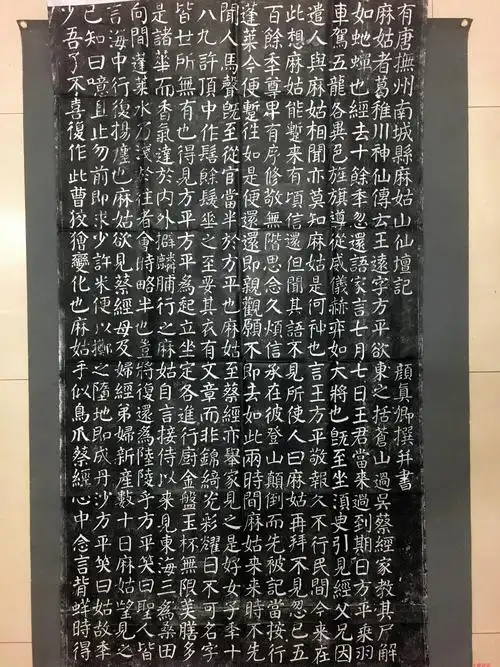 有唐撫州南城縣麻姑山仙壇記 顏真卿撰并書
麻姑者葛稚川神仙傳云王遠字方平欲東之括蒼山過吳蔡經家教其尸解
如虵蟬也經去十餘年忽還語家言七月七日王君當來過到期日方平乘羽
車駕五龍各異色旌旗導從威儀赫弈如大將也既至坐須臾引見經父兄因
遣人與麻姑相聞亦莫知麻姑是何神也言王方平敬報久不行民間今來在
此想麻姑能蹔來有頃信還但聞其語不見所使人曰麻姑再拜不見忽已五
百餘年尊卑有序修敬無階思念久煩信承在彼登山顛倒而先被記當按行
蓬萊今便蹔往如是便還還即親觀願不即去如此兩時間麻姑來來時不先
聞人馬聲既至從官當半於方平也麻姑至蔡經亦舉家見之是好女子年十
八九許頂中作髻餘髮垂之至要其衣有文章而非錦綺光彩耀日不可名字
皆世所無有也得見方平方平為起立坐定各進行廚金盤玉杯無限美膳多
是諸華而香氣達於內外擗麟脯行之麻姑自言接侍以來見東海三為桑田
向間蓬萊水乃淺於往者會時略半也豈將復還為陸陵乎方平笑曰聖人皆
言海中行復揚塵也麻姑欲見蔡經母及婦經弟婦新產數十日麻姑望見之
已知曰噫且止勿前即求少許米便以擲之墮地即成丹沙方平笑曰姑故年
少吾了不喜復作此曹狡獪變化也麻姑手似鳥爪蔡經心中念言背蛘時得